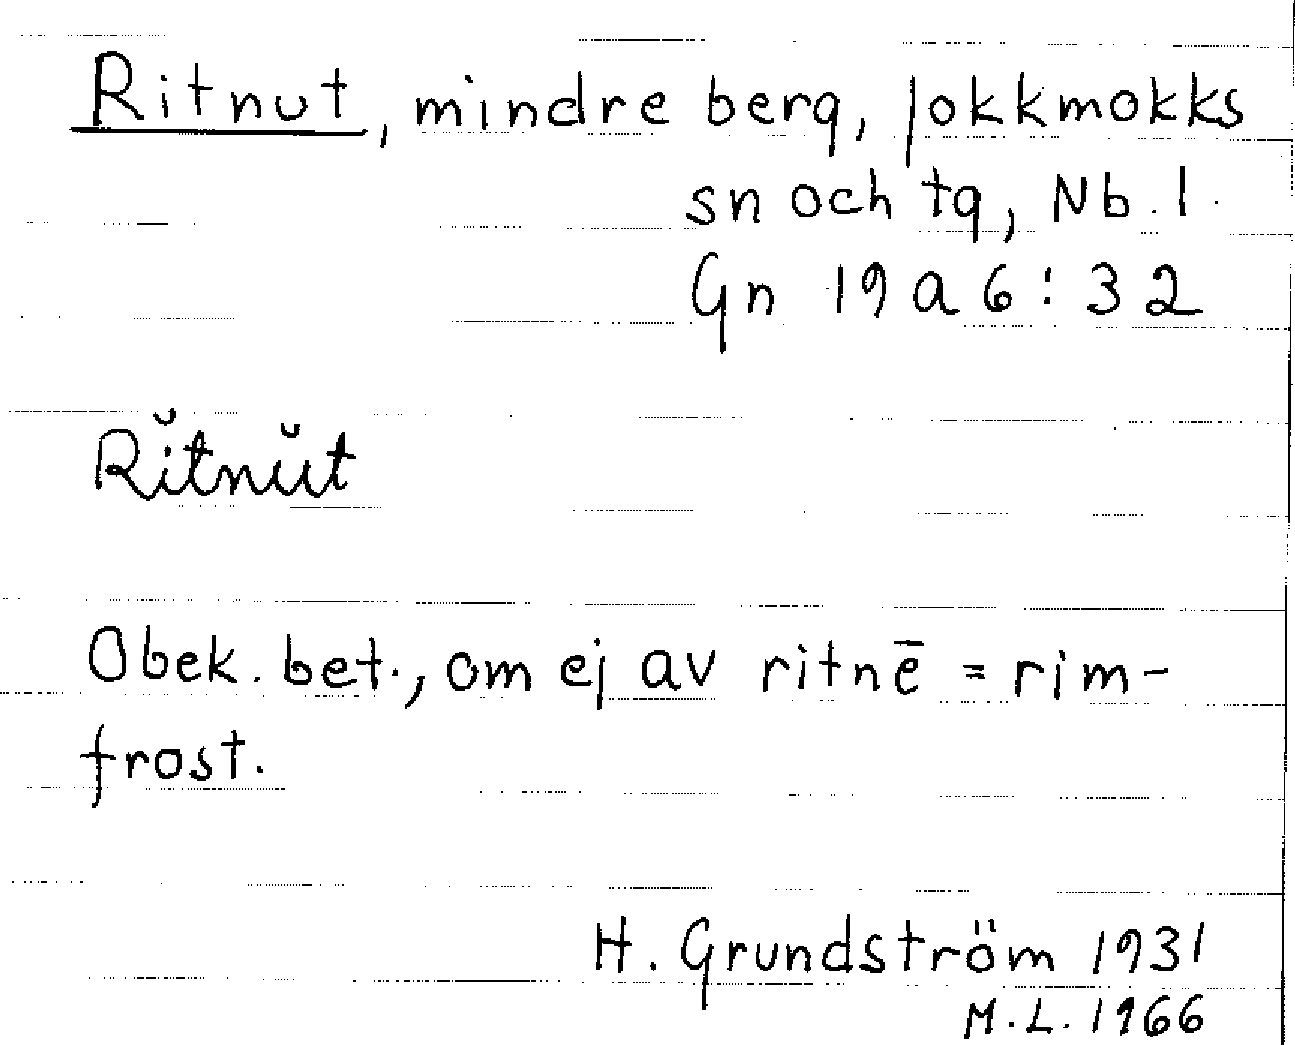 Ritnut, mindre berg, Jokkmokks
sn och tg, Nb. l.
Gn 19 a 6:32
Rĭtnŭt
Obek. bet., om ej av ritnē = rim-
frost.
H. Grundström 1931
M.L. 1966